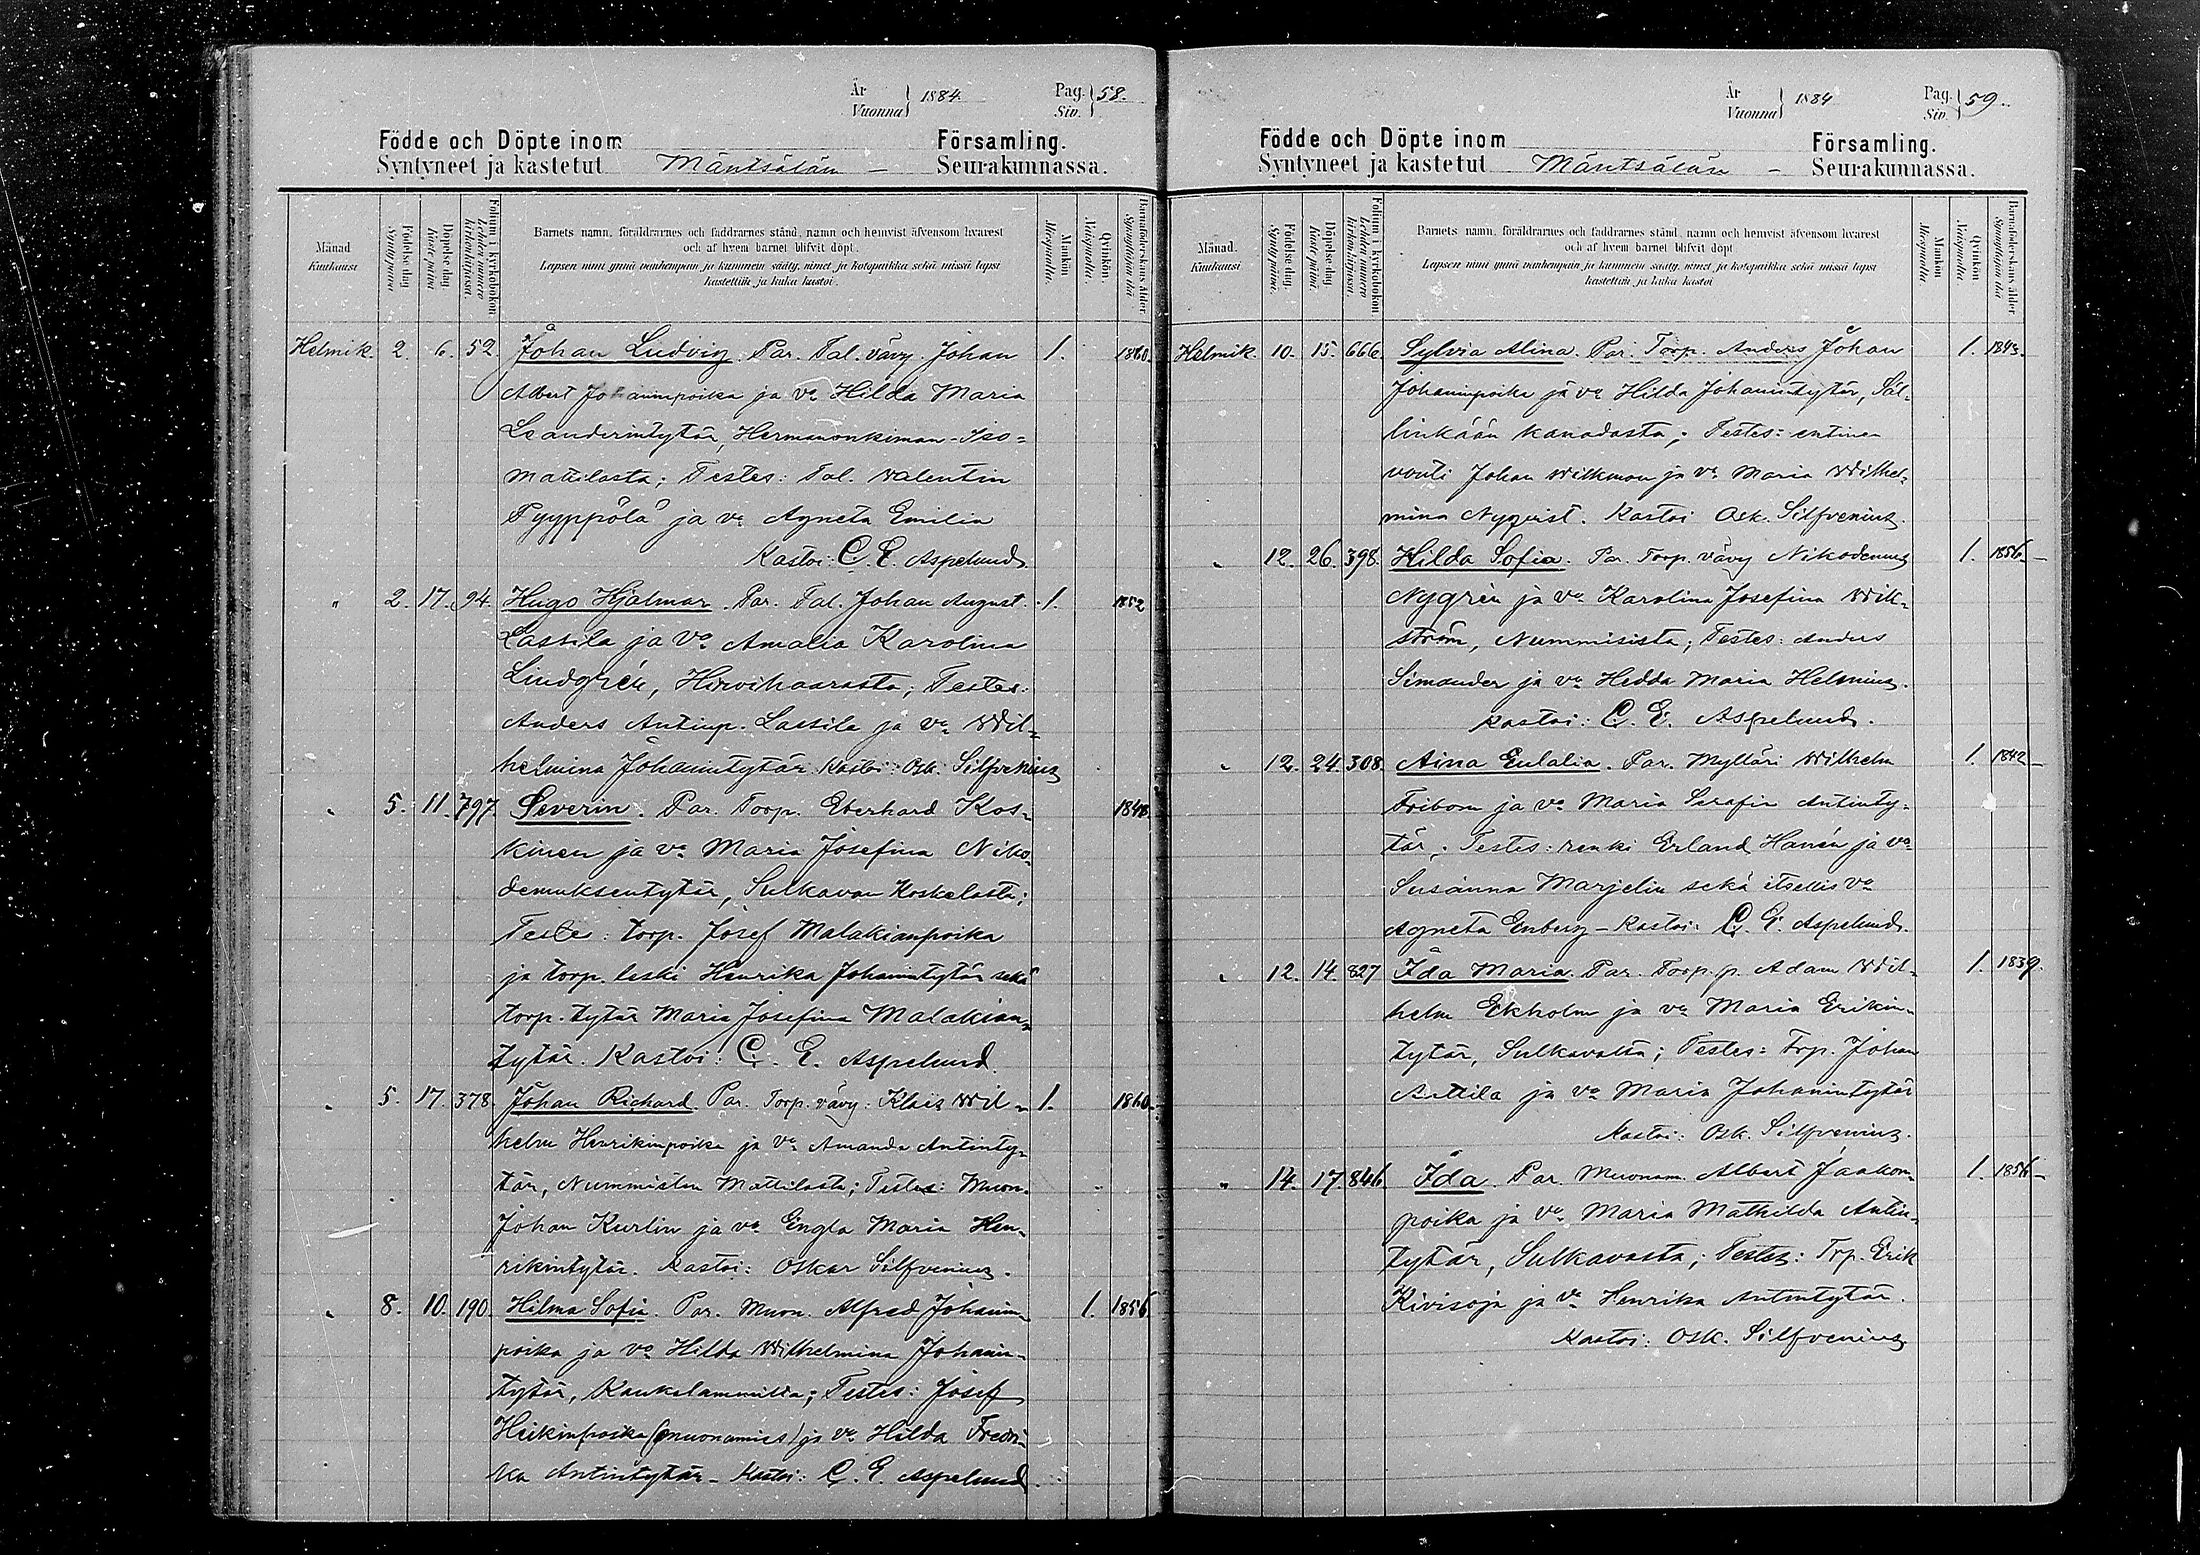 År
Vuonna } 1884.
Pag.
Siv. } 58.
Födde och Döpte inom Församling.
Syntyneet ja kastetut Mäntsälän – Seurakunnassa.
Månad
Kuukausi
Födelsedag
Syntypäivä
Döpelsedag
Kastepäivä
Folium i kyrkoboken
Lehden numero kirkonkirjassa.
Barnets namn, föräldrarnes och faddrarnes stånd, namn och hemvist äfvensom hvarest
och af hvem barnet blifvit döpt.
Lapsen nimi ynnä vanhempain ja kummein sääty, nimet ja kotopaikka sekä missä lapsi
kastettiin ja kuka kastoi.
Mankön
Miespuolta.
Qvinkön.
Naispuolta.
Barnaföderskans ålder
Synnyttäjän ikä
Helmik. 2. 6. 52. Johan Ludvig. Par. Tal. vävy Johan 1. 1860.
Albert Johaninpoika ja vo Hilda Maria
Leanderintytär, Hermanonkiman-Iso-
mattilasta; Testes: Tal. Valentin
Pyyppölä ja vo Agneta Emilia
Kastoi: C. E. Aspelund.
" 2. 17. 94. Hugo Hjalmar. Par. Tal. Johan August 1. 1852
Lassila ja vo Amalia Karolina
Lindgrén, Hirvihaarasta; Testes:
Anders Antinp. Lassila ja vo Wil-
helmina Johanintytär Kastoi: Osk. Silfvenius
" 5. 11. 797. Severin. Par. Torp. Eberhard Kos- 1848.
kinen ja vo Maria Josefina Niko-
demuksentytär, Sulkavan Koskelasta;
Testes: torp. Josef Malakianpoika
ja torp. leski Henrika Johanintytär sekä
torp. tytär Maria Josefina Malakian-
tytär. Kastoi: C. E. Aspelund.
" 5. 17. 378. Johan Richard. Par. Torp. vävy: Klais Wil- 1. 1860.
helm Henrikinpoika ja vo Amanda Antinty-
tär, Nummisten Mattilasta; Testes: Muon.
Johan Kurlin ja vo Engla Maria Hen-
rikintytär. Kastoi: Oskar Silfvenius.
" 8. 10. 190. Hilma Sofia. Par. Muon. Alfred Johanin- 1. 1856
poika ja vo Hilda Wilhelmina Johanin-
tytär, Kaukalammilta; Testes: Josef
Heikinpoika (muonamies) ja vo Hilda Fredri-
ka Antintytär – Kastoi: C. E. Aspelund.
År
Vuonna } 1884
Pag.
Siv. } 59.
Födde och Döpte inom Församling.
Syntyneet ja kastetut Mäntsälän – Seurakunnassa.
Månad.
Kuukausi
Födelsedag
Syntypäivä.
Döpelsedag
Kastepäivä
Folium i kyrkoboken
Lehden numero kirkonkirjassa.
Barnets namn, föräldrarnes och faddrarnes stånd, namn och hemvist äfvensom hvarest
och af hvem barnet blifvit döpt
Lapsen nimi ynnä vanhempain ja kummein sääty, nimet ja kotopaikka sekä missä lapsi
kastettiin ja kuka kastoi
Mankön
Miespuolta.
Qvinkön
Naispuolta.
Barnaföderskans ålder
Synnyttäjän ikä
Helmik. 10. 15. 666. Sylvia Alina. Par. Torp. Anders Johan 1. 1843.
Johaninpoika ja vo Hilda Johanintytär, Säl-
linkään kanadasta; Testes: entinen
vouti Johan Wilkman ja vo Maria Wilhel-
mina Nyqvist. Kastoi Osk. Silfvenius.
" 12. 26. 398. Hilda Sofia. Par. Torp. vävy Nikodemus 1. 1856.
Nygrén ja vo Karolina Josefina Wik-
ström, Nummisista; Testes: Anders
Simander ja vo Hedda Maria Helenius.
Kastoi: C. E. Aspelund.
" 12. 24. 308. Aina Eulalia. Par. Mylläri Wilhelm 1. 1842
Fribom ja vo Maria Serafia Antinty-
tär. Testes: renki Erland Hanén ja vo
Susanna Marjelin sekä itsellis vo
Agneta Enberg – Kastoi: C. E. Aspelund.
" 12. 14. 827 Ida Maria. Par. Torp. p. Adam Wil- 1. 1839.
helm Ekholm ja vo Maria Erikin-
tytär, Sulkavalta; Testes: Trp. Johan
Anttila ja vo Maria Johanintytär
Kastoi: Osk. Silfvenius.
" 14. 17. 846 Ida. Par. Muonam. Albert Jaakon- 1. 1856
poika ja vo Maria Mathilda Antin-
tytär, Sulkavasta; Testes: Trp. Erik
Kivisoja ja vo Henrika Antintytär.
Kastoi: Osk. Silfvenius